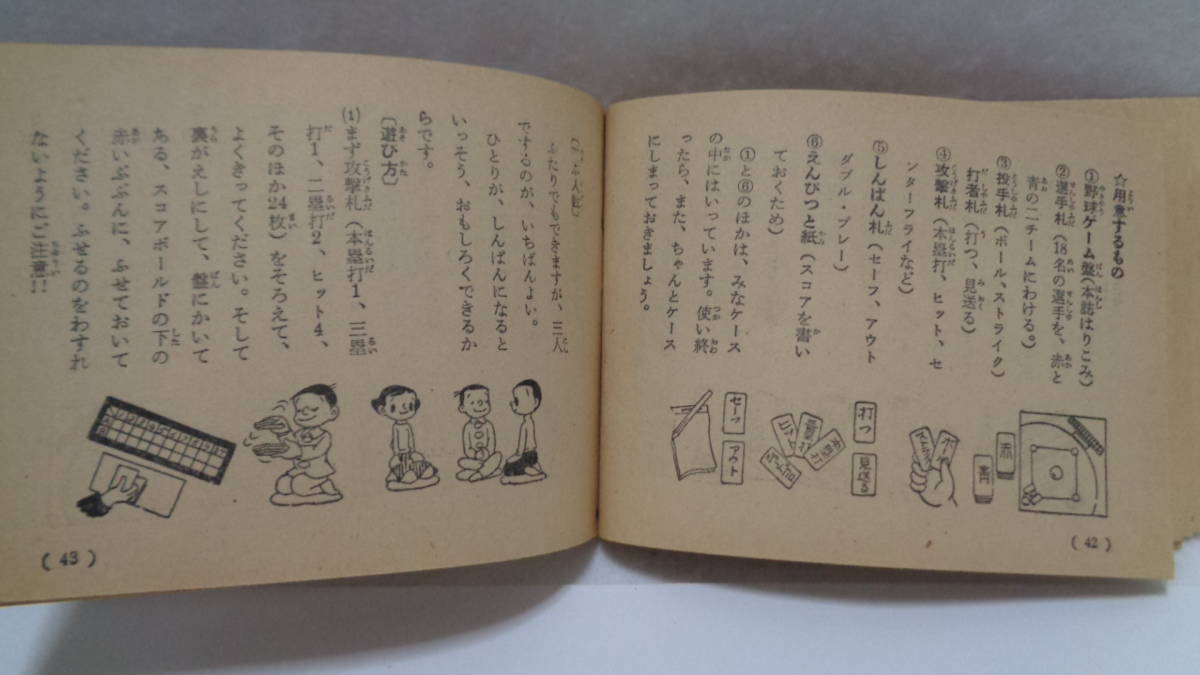 ☆用意するもの
①野球ゲーム盤(本誌はりこみ)
②選手札(18名の選手を、赤と
青の二チームにわける。)
③投手札(ボール、ストライク)
打者札(打つ、見送る)
④攻撃札(本塁打、ヒット、セ
ンターフライなど)
⑤しんぱん札(セーフ、アウト
ダブル・プレー)
⑥えんぴつと紙(スコアを書い
ておくため)
①と⑥のほかは、みなケース
の中にはいっています。使い終
ったら、また、ちゃんとケース
にしまっておきましょう。
赤
青
ストライク
打つ
見送る
セーフ
アウト
(42)
ふたりでもできますが、三人
でするのが、いちばんよい。
ひとりが、しんぱんになると
いっそう、おもしろくできるか
らです。
〔遊び方〕
(1)まず攻撃札(本塁打1、三塁
打1、二塁打2、ヒット4、
そのほか24枚)をそろえて、
よくきってください。そして
裏がえしにして、盤にかいて
ある、スコアボールドの下の
赤いぶぶんに、ふせておいて
ください。ふせるのをわすれ
ないようにご注意!!
(43)